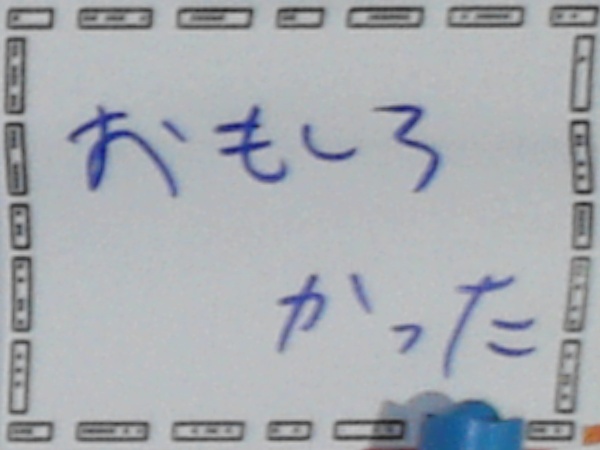 おもしろ
かった